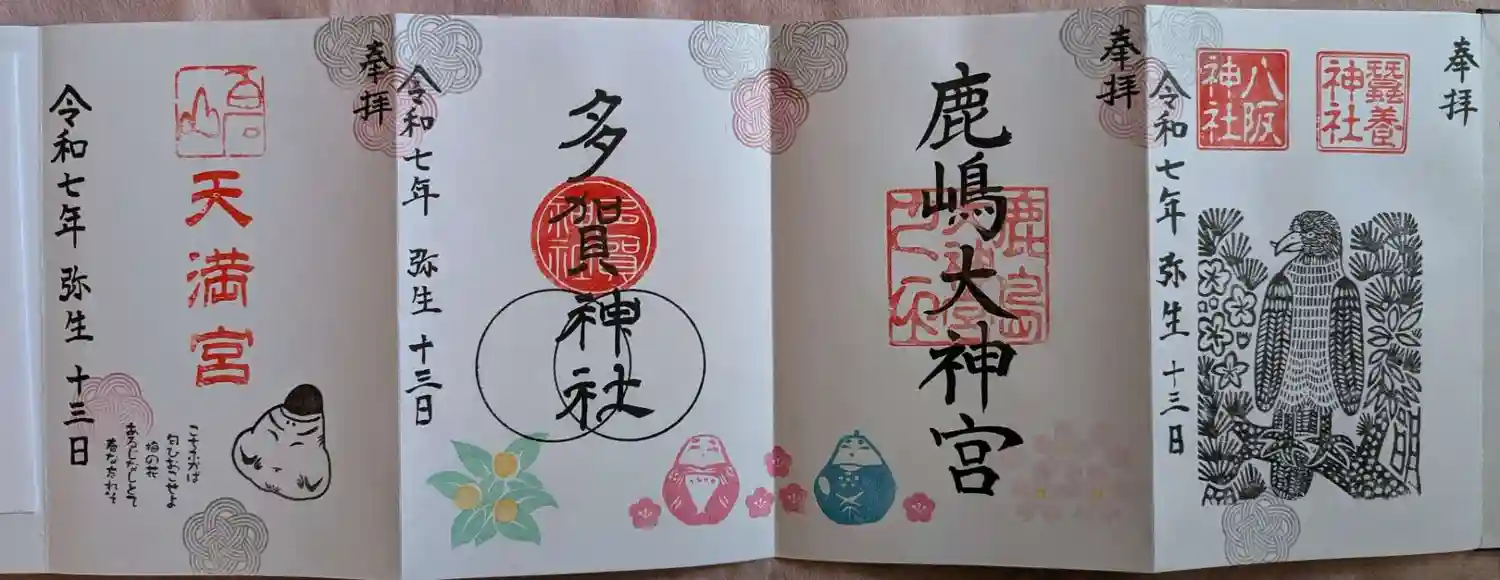 奉拝
蠶養神社
八阪神社
令和七年 弥生 十三日
奉拝
鹿嶋大神宮
多賀神社
令和七年 弥生 十三日
奉拝
天満宮
こちふかば
匂ひおこせよ
梅の花
あるじなしとて
春な忘れそ
令和七年 弥生 十三日